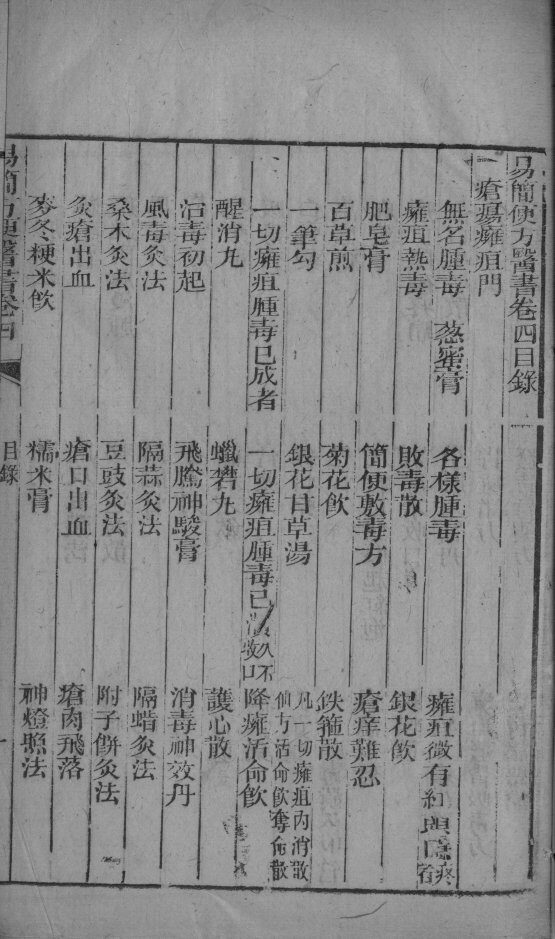 易簡便方醫書卷四目錄
一瘡瘍癰疽門
無名腫毒 葱蜜膏 各樣腫毒 癰疽微有紅
癰疽熱毒 敗毒散 銀花飲
肥皂膏 簡便敷毒方 瘡痒難忍
百草煎 菊花飲 鉄箍散
一筆勾 銀花甘草湯 凡一切癰疽內消散 仙方活命飲奪命散
一切癰疽腫毒已成者 一切癰疽腫毒已潰 降癰活命飲
醒消丸 蠟礬丸 護心散
治毒初起 飛騰神駿膏 消毒神效丹
風毒灸法 隔蒜灸法 隔蜡灸法
桑木灸法 豆豉灸法 附子餅灸法
灸瘡出血 瘡口出血 瘡肉飛落
麥冬粳米飲 糯米膏 神燈照法
易簡方便醫書卷四 目錄 一